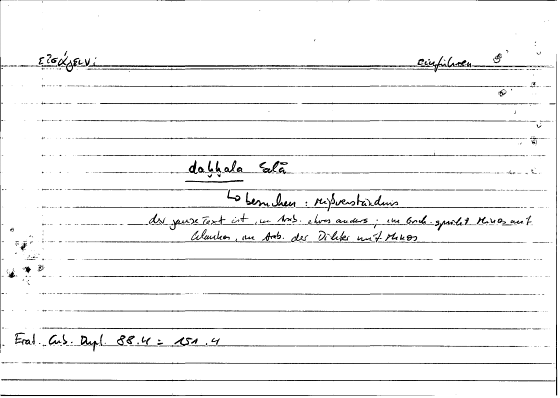 εἰσάγειν: einführen
daḫḫala ʿalā
↳ besuchen: Mißverständnis
der ganze Text ist im Arab. etwas anders; im Griech. spricht Minos mit
Glaukos, im Arab. der Dichter mit Minos
Erat. Cub. Dupl. 88.4 = 151.4